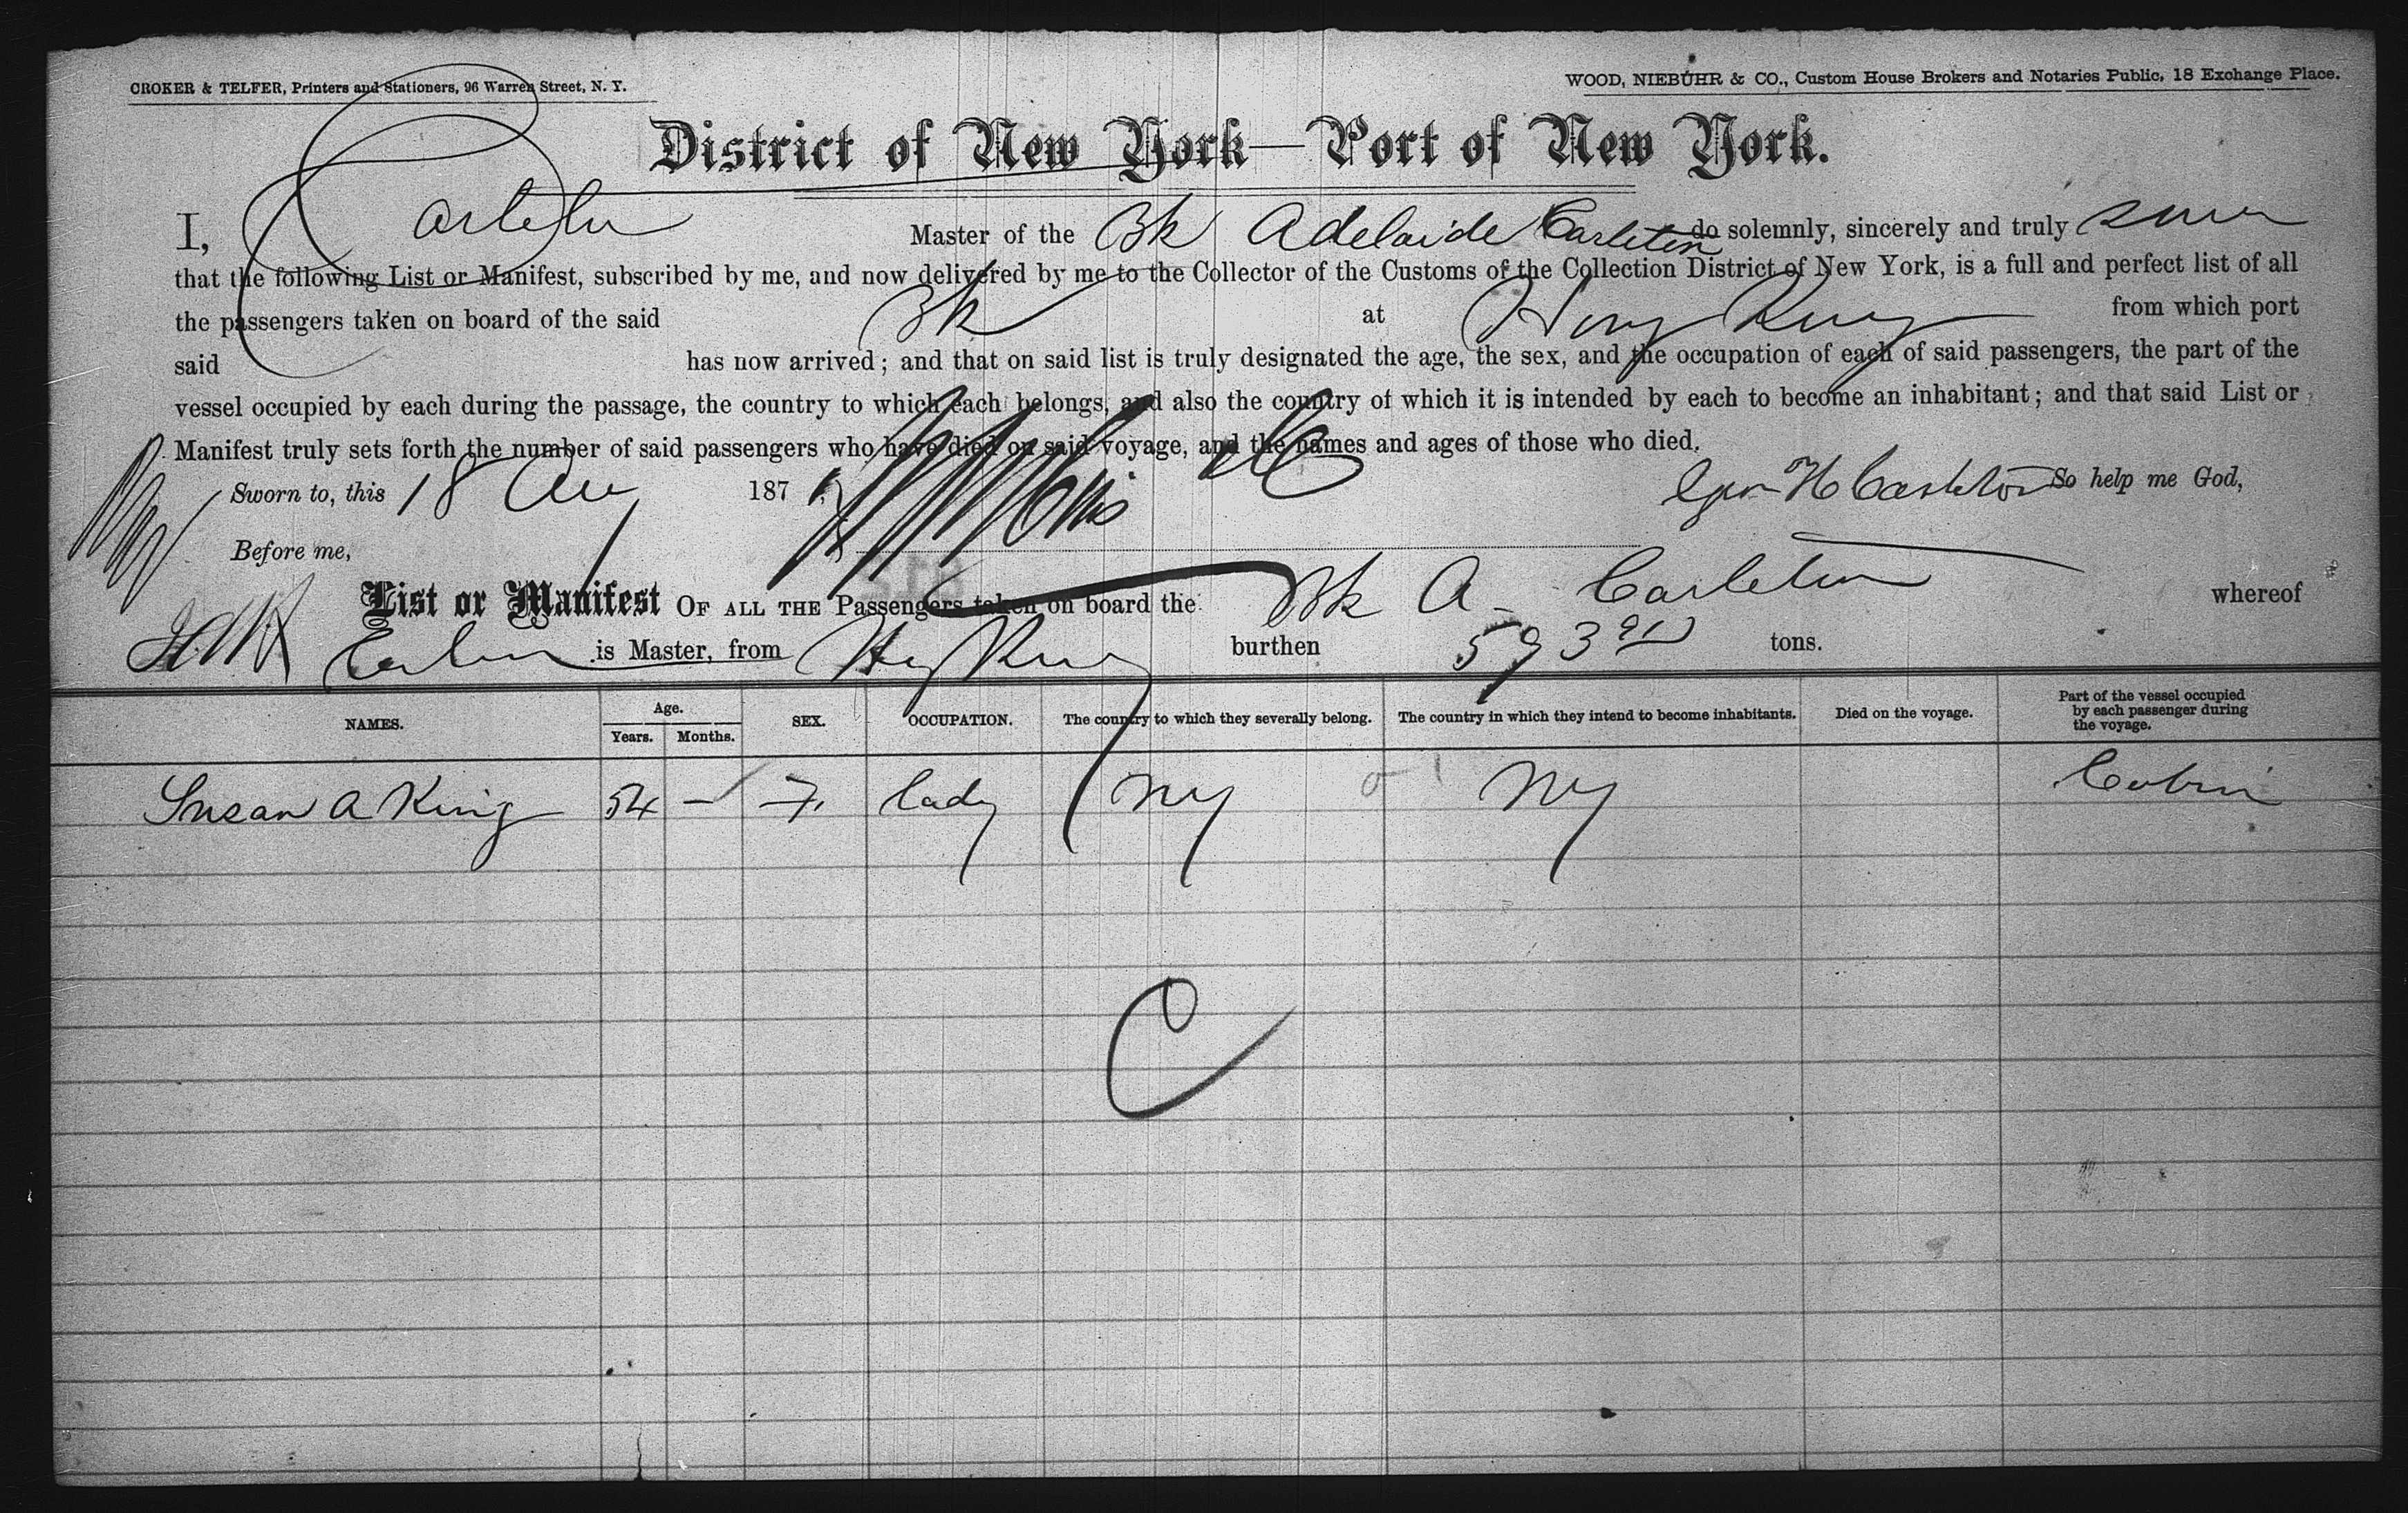 CROKER & TELFER, Printers and Stationers, 96 Warren Street, N. Y.
WOOD, NIEBUHR & CO., Custom House Brokers and Notaries Public, 18 Exchange Place.
District of New York—Port of New York.
I, Carleton Master of the Bk Adelaide Carleton do solemnly, sincerely and truly swear
that the following List or Manifest, subscribed by me, and now delivered by me to the Collector of the Customs of the Collection District of New York, is a full and perfect list of all
the passengers taken on board of the said Bk at Hong Kong from which port
said has now arrived; and that on said list is truly designated the age, the sex, and the occupation of each of said passengers, the part of the
vessel occupied by each during the passage, the country to which each belongs, and also the country of which it is intended by each to become an inhabitant; and that said List or
Manifest truly sets forth the number of said passengers who have died on said voyage, and the names and ages of those who died.
Sworn to, this 18 Au 187 H Carleton So help me God,
Before me,
List or Manifest OF ALL THE Passengers taken on board the Bk A. Carleton whereof
Carleton is Master, from Hg Kong burthen 593 tons.
NAMES. Age. Years. Months. SEX. OCCUPATION. The country to which they severally belong. The country in which they intend to become inhabitants. Died on the voyage. Part of the vessel occupied by each passenger during the voyage.
Susan A King 54 — F. lady NY NY Cabin
C